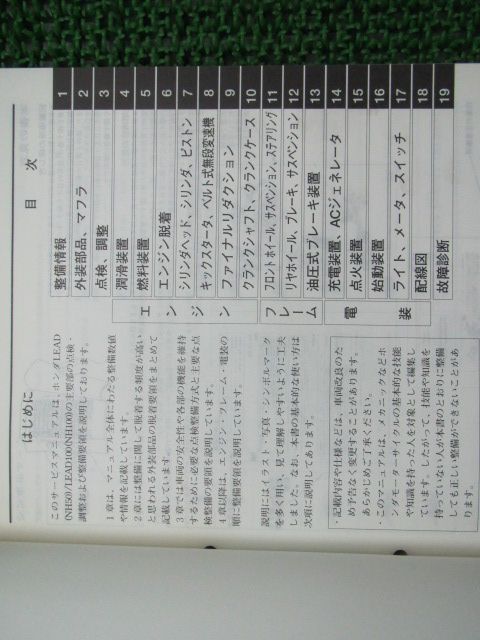 はじめに
このサービスマニュアルは、ホンダLEAD
(NH90)/LEAD100(NH100)の主要部の点検
調整および整備要領を説明しております。
1章は、マニュアル全体にわたる整備数値
や情報を記載しています。
2章には整備に関して脱着する頻度が高い
と思われる外装部品の脱着要領をまとめて
記載しています。
3章では車両の安全性や各部の機能を維持
するために必要な点検整備方法と主要な点
検整備の要領を説明しています。
4章以降は、エンジン・フレーム・電装の
順に整備要領を説明しています。
説明にはイラスト・写真・シンボルマーク
を多く用い、見て理解しやすいように工夫
しました。なお、本書の基本的な使い方は
次項に説明してあります。
・記載内容や仕様などは、車両改良のた
め予告なく変更することがあります。
あらかじめご了承ください。
・このマニュアルは、メカニックなどホ
ンダモーターサイクルの基本的な技能
や知識を持った人を対象として編集し
ています。したがって、技能や知識を
持っていない人が本書のとおりに整備
しても正しい整備ができないことがあ
ります。
目 次
整備情報 1
外装部品、マフラ 2
点検、調整 3
潤滑装置 4
エンジン
燃料装置 5
エンジン脱着 6
シリンダヘッド、シリンダ、ピストン 7
キックスタータ、ベルト式無段変速機 8
ファイナルリダクション 9
クランクシャフト、クランクケース 10
フレーム
フロントホイール、サスペンション、ステアリング 11
リヤホイール、ブレーキ、サスペンション 12
油圧式ブレーキ装置 13
電装
充電装置、ACジェネレータ 14
点火装置 15
始動装置 16
ライト、メータ、スイッチ 17
配線図 18
故障診断 19